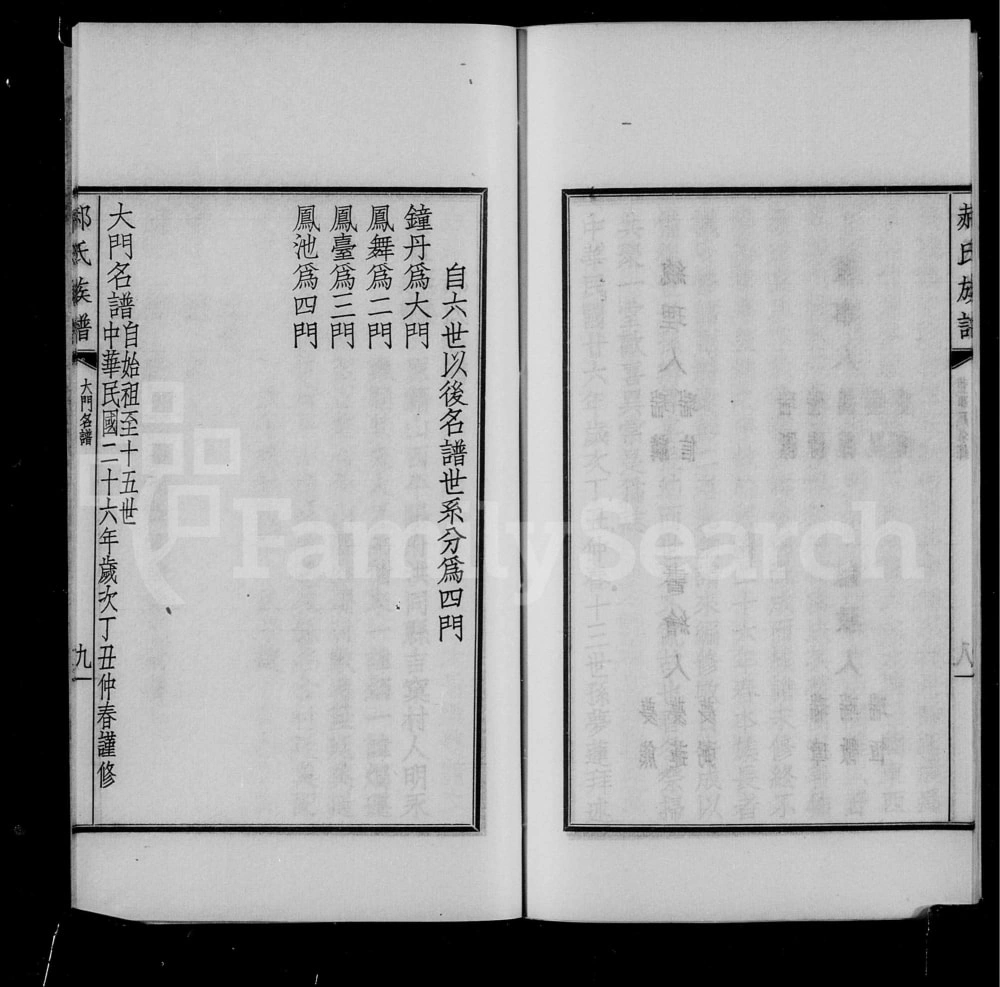 郝氏族譜
八
自六世以後名譜世系分爲四門
鐘丹爲大門
鳳舞爲二門
鳳臺爲三門
鳳池爲四門
大門名譜自始祖至十五世
中華民國二十六年歲次丁丑仲春謹修
郝氏族譜
大門名譜
九
FamilySearch